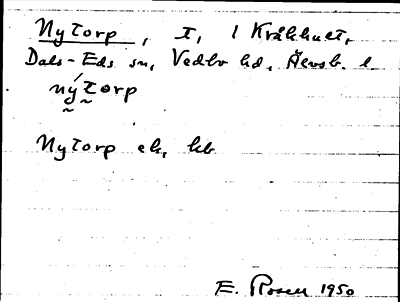 Nytorp, t, 1 Kråkhult,
Dals-Eds sn, Vedbo hd, Älvsb. l.
nýtorp
Nytorp ek, kb
E. Rosell 1950